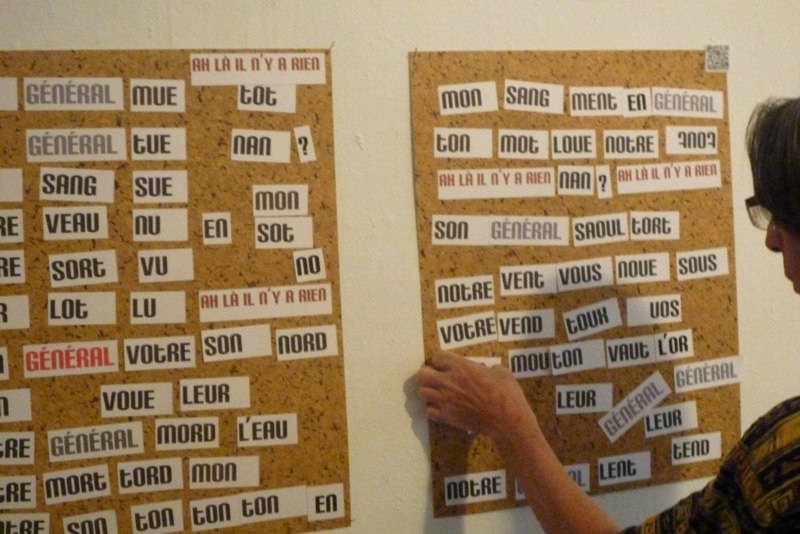 AH LÀ IL N'Y A RIEN
GÉNÉRAL MUE tOt
GÉNÉRAL tUE NAN ?
SANG SUE MON
VEAU NU EN SOt
SORt VU NO
LOt LU AH LÀ IL N'Y A RIEN
GÉNÉRAL VOtRE SON NORD
VOUE LEUR
GÉNÉRAL MORD L'EAU
MORt tORD MON
SON tON tON tON EN
MON SANG MENt EN GÉNÉRAL
tON MOt LOUE NOtRE
AH LÀ IL N'Y A RIEN NAN ? AH LÀ IL N'Y A RIEN
SON GÉNÉRAL SAOUL tORt
NOtRE VENt VOUS NOUE SOUS
VOtRE VEND tOUX VOS
MOUtON VAUt L'OR
LEUR GÉNÉRAL GÉNÉRAL
LEUR
tEND
NOtRE LENt